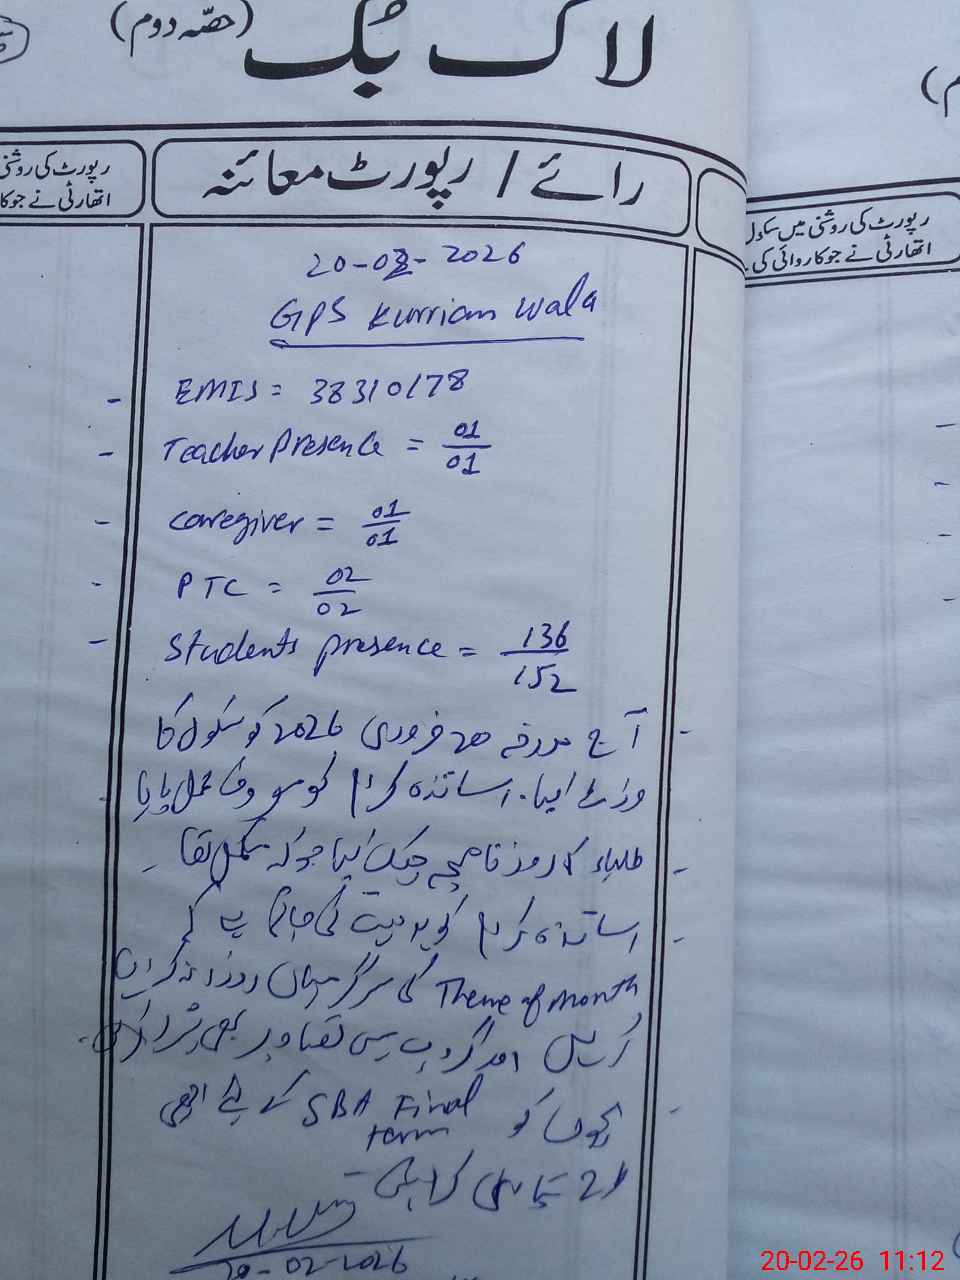 لاگ بُک (حصّہ دوم)
رائے / رپورٹ معائنہ
رپورٹ کی روشنی
اتھارٹی نے جو کا
رپورٹ کی روشنی میں سکول
اتھارٹی نے جو کاروائی کی
20-02-2026
GPS Kurrian wala
- EMIS = 38310178
- Teacher Presence = 01/01
- Caregiver = 01/01
- PTC = 02/02
- Students presence = 136/152
- آج مورخہ 20 فروری 2026 کو سکول کا
وزٹ کیا۔ اساتذہ کرام کو مصروف عمل پایا
- طلباء کا روزنامچہ چیک کیا جو کہ مکمل تھا۔
- اساتذہ کرام کو ہدایت کی جاتی ہے کہ
Theme of Month کی سرگرمیاں روزانہ کرائیں
اور گروپ میں تصاویر بھی شئر کریں۔
- بچوں کو SBA Final term کے لیے اچھی
تیاری کرائیں۔
20-02-2026
20-02-26 11:12